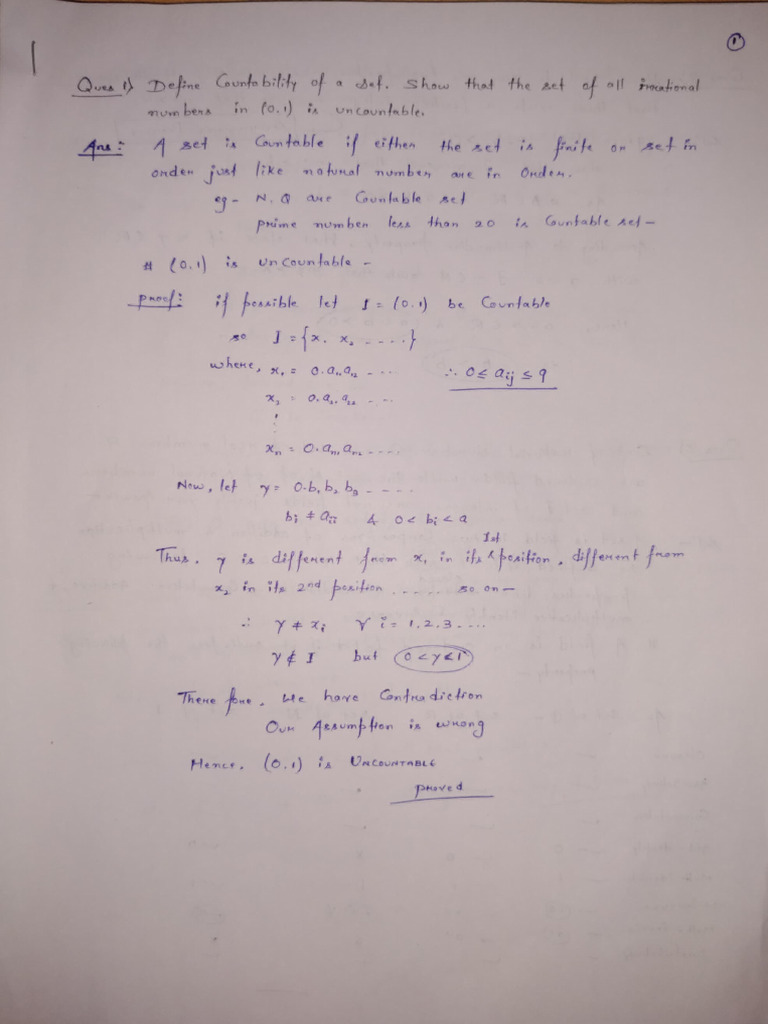 1
Ques 1) Define Countability of a set. Show that the set of all irrational
numbers in (0.1) is uncountable.
Ans: A set is Countable if either the set is finite or set in
order just like natural number are in Order.
eg - N. Q are Countable set
prime number less than 20 is Countable set -
# (0.1) is uncountable -
proof: if possible let I = (0.1) be Countable
so I = {x. x₂ .....}
where, x₁ = 0.a₁₁a₁₂ ... ∴ 0 ≤ aij ≤ 9
x₂ = 0.a₂₁a₂₂ ....
⋮
xn = 0.an₁ an₂ .....
Now, let y = 0.b₁ b₂ b₃ .....
bi ≠ aii & 0 < bi < a
Thus, y is different from x₁ in its 1st position, different from
x₂ in its 2nd position ..... so on -
∴ y ≠ xi ∀ i = 1.2.3 ....
y ∉ I but 0 < y < 1
There fore, We have Contradiction
Our Assumption is wrong
Hence. (0.1) is UNCOUNTABLE
proved